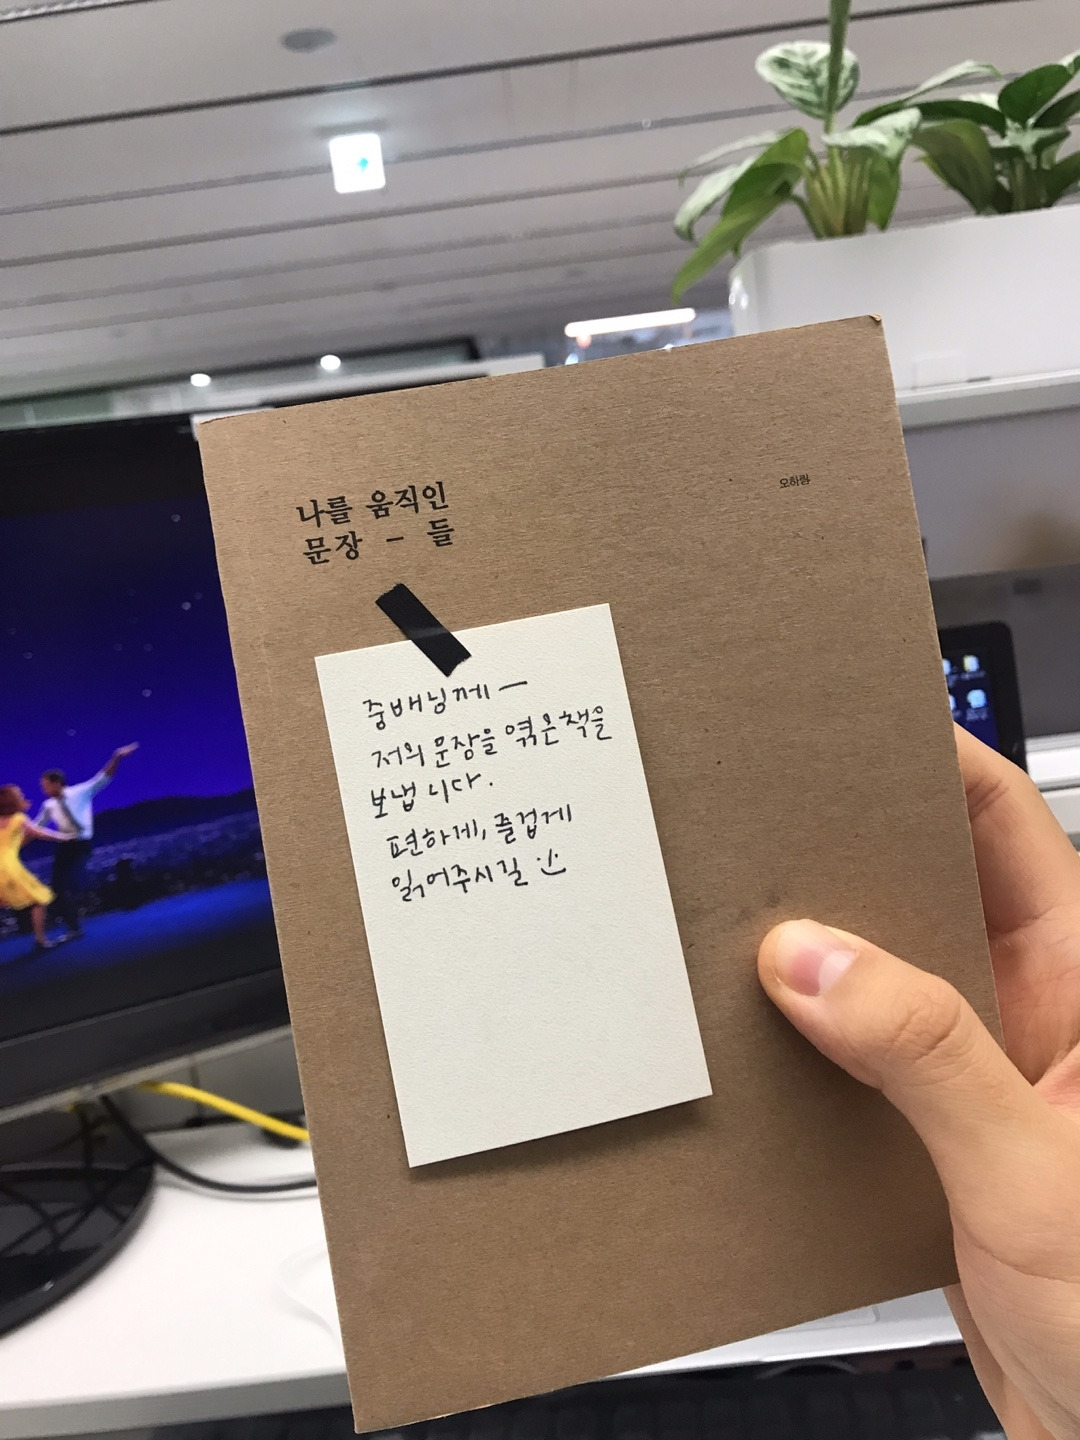 나를 움직인
문장 - 들
오하림
중배님께 -
저의 문장을 엮은 책을
보냅니다.
편하게, 즐겁게
읽어주시길